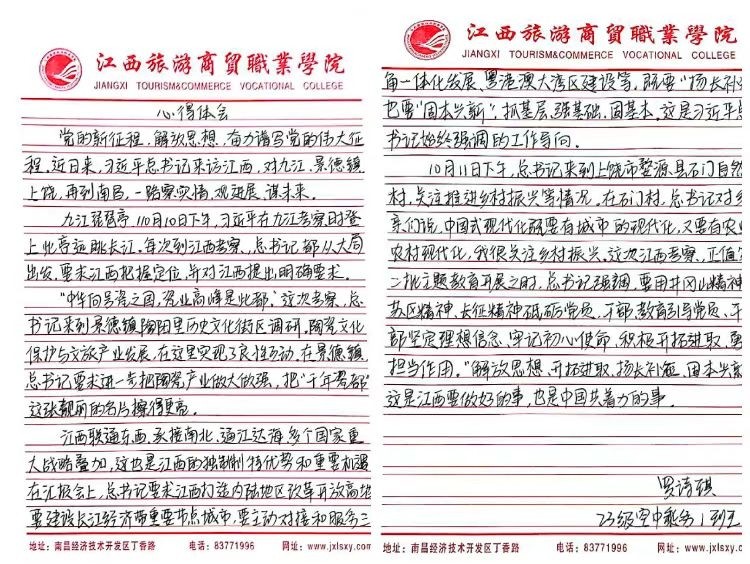 江西旅游商贸職業學院
JIANGXI TOURISM&COMMERCE VOCATIONAL COLLEGE
心得体会
党的新征程，解放思想，奋力谱写党的伟大征
程，近日来，习近平总书记来访江西，对九江、景德镇
上饶，再到南昌，一路察实情、观进展、谋未来。
九江琵琶亭，10月10日下午，习近平在九江考察时登
上此亭远眺长江。每次到江西考察，总书记都从大局
出发，要求江西把握定位，并对江西提出明确要求。
"中华向号瓷之国，瓷业高峰是此都"，这次考察，总
书记来到景德镇陶阳里历史文化街区调研。陶瓷文化
保护与文旅产业发展，在这里实现了良性互动，在景德镇
总书记要求进一步把陶瓷产业做大做强，把"千年瓷都"
这张靓丽的名片擦得更亮。
江西联通东西、承接南北、通江达海，多个国家重
大战略叠加，这也是江西的独特优势和重要机遇
在汇报会上，总书记要求江西打造内陆地区改革开放高地
要建设长江经济带重要节点城市，要主动对接和服务三
地址：南昌经济技术开发区丁香路 电话：83771996 网址：www.jxlsxy.com
江西旅游商贸職業學院
JIANGXI TOURISM&COMMERCE VOCATIONAL COLLEGE
角一体化发展、粤港澳大湾区建设等，既要"扬长补短
也要"固本兴新"，抓基层、强基础、固基本，这是习近平总
书记始终强调的工作导向。
10月11日下午，总书记来到上饶市婺源县石门自然
村，关注推进乡村振兴等情况。在石门村，总书记对乡
亲们说，中国式现代化既要有城市的现代化，又要有农业
农村现代化，我很关注乡村振兴。这次江西考察，正值第
二批主题教育开展之时，总书记强调，要用井冈山精神
苏区精神、长征精神砥砺党员、干部，教育引导党员、干
部坚定理想信念，牢记初心使命，积极开拓进取，勇
担当作用。"解放思想、开拓进取，扬长补短、固本兴新
这是江西要做好的事，也是中国共着力的事。
罗诗琪
23级空中乘务1班
地址：南昌经济技术开发区丁香路 电话：83771996 网址：www.jxlsxy.com